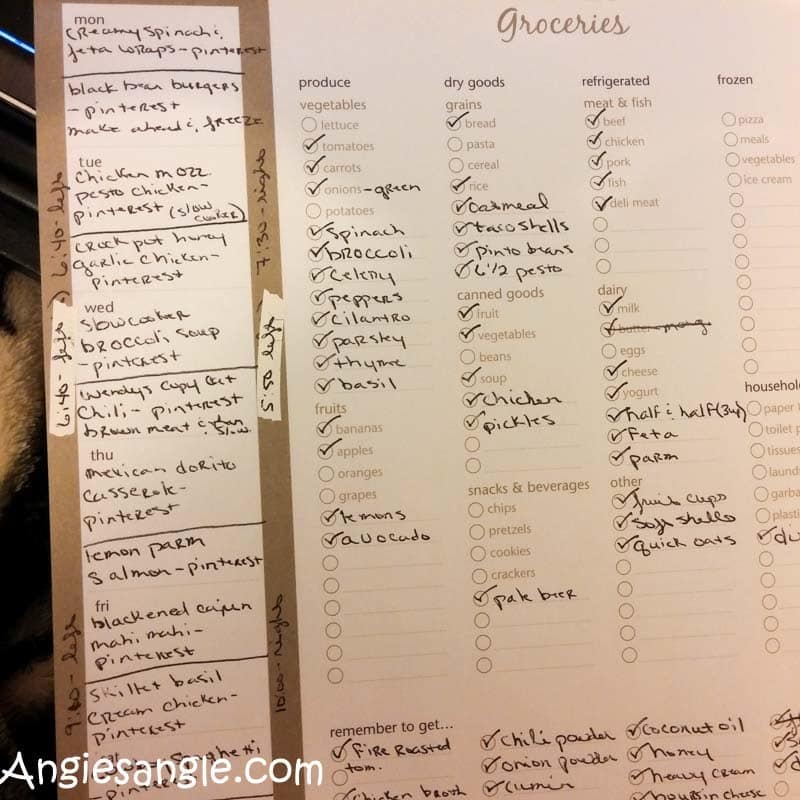 Groceries
mon
creamy spinach &
feta wraps - pinterest
black bean burgers
- pinterest
make ahead & freeze
tue
chicken mozz
pesto chicken -
pinterest (slow cooker)
crock pot honey
garlic chicken -
pinterest
wed
slowcooker
broccoli soup
- pinterest
wendys copy cat
chili - pinterest
brown meat & then slow
thu
mexican dorito
casserole -
pinterest
lemon parm
salmon - pinterest
fri
blackened cajun
mahi mahi -
pinterest
skillet basil
cream chicken -
pinterest
6:40 - left
7:30 - right
6:40 - left
5:50 left
left
10:00 - right
produce
vegetables
lettuce
tomatoes
carrots
onions - green
potatoes
spinach
broccoli
celery
peppers
cilantro
parsley
thyme
basil
fruits
bananas
apples
oranges
grapes
lemons
avocado
dry goods
grains
bread
pasta
cereal
rice
oatmeal
taco shells
pinto beans
6 1/2 pesto
canned goods
fruit
vegetables
beans
soup
chicken
pickles
snacks & beverages
chips
pretzels
cookies
crackers
pale beer
refrigerated
meat & fish
beef
chicken
pork
fish
deli meat
dairy
milk
butter
eggs
cheese
yogurt
half & half (3w)
feta
parm
other
fruit cups
soft shells
quick oats
frozen
pizza
meals
vegetables
ice cream
household
paper
toilet p
tissues
laund
garba
plasti
remember to get...
fire roasted
tom.
chicken broth
chili powder
onion powder
cumin
coconut oil
honey
heavy cream
boursin cheese
Angiesangle.com